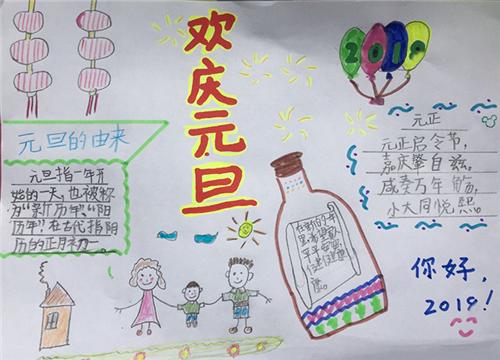 欢庆元旦
2019
元旦的由来
元旦指一年开
始的一天,也被称
为“新历年”“阳
历年”在古代指阴
历的正月初一
元正
元正启令节,
嘉庆肇自兹,
咸奏万年觞,
小大同悦熙。
在新的年
你好,
2019!